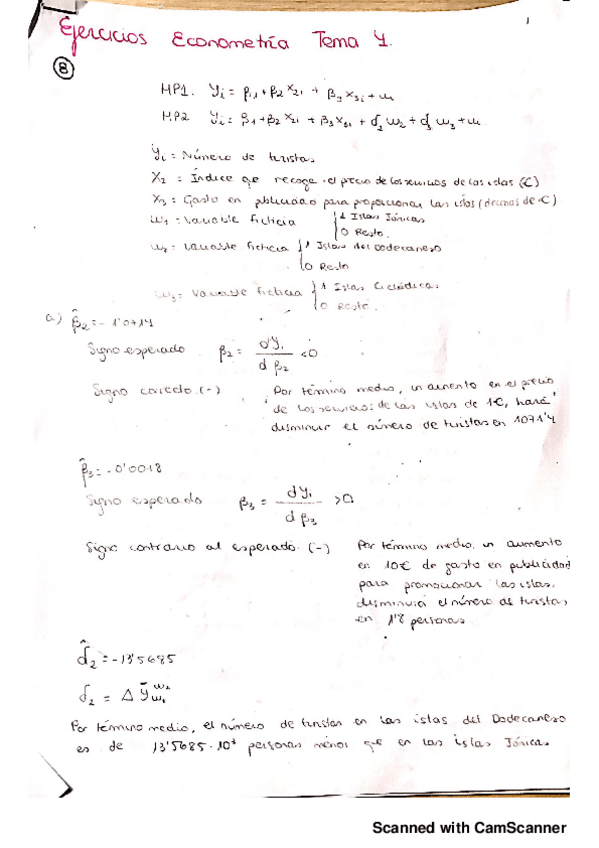 Ejercicios Econometría Tema 4.
8
MP1. Yi = β1 + β2 X2i + β3 X3i + u
MP2 Yi = β1 + β2 X2i + β3 X3i + d2 w2 + d3 w3 + u
Yi = Número de turistas
X2 = Índice qe recoge el precio de los servicios de las islas (€)
X3 = Gasto en publicidad para proporcionar las islas (decenas de €)
w1 = variable ficticia { 1 Islas Jónicas
0 Resto.
w2 = variable ficticia { 1 Islas del Dodecaneso
0 Resto
w3 = variable ficticia { 1 Islas Cicládicas
0 Resto.
a) β̂2 = - 1'0714
Signo esperado β2 = dYi / d β2 < 0
Signo correcto (-) Por término medio, un aumento en el precio
de los servicios de las islas de 1€, hará
disminuir el número de turistas en 1071'4
β̂3 = - 0'0018
Signo esperado β3 = dYi / d β3 > 0
Signo contrario al esperado (-) Por término medio, un aumento
en 10€ de gasto en publicidad
para promocionar las islas.
disminuiría el número de turistas
en 1'8 personas
d̂2 = - 13'5685
d2 = Δ Ȳ w2 w1
Por término medio, el número de turistas en las islas del Dodecaneso
es de 13'5685·10³ personas menos que en las islas Jónicas
Scanned with CamScanner